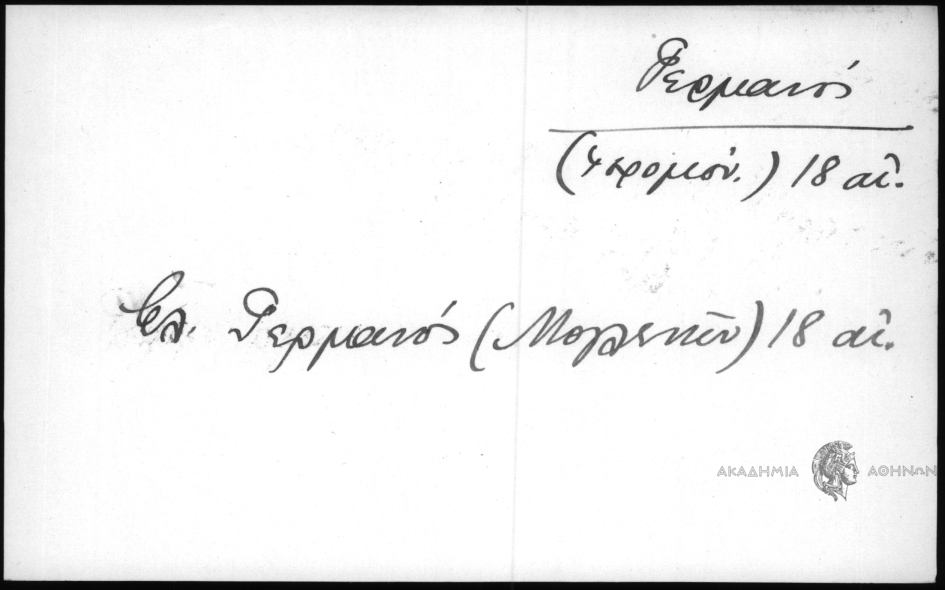 Γερμανός
(ιερομόν.) 18 αἰ.
Βλ. Γερμανός (Μογλενῶν) 18 αἰ.
ΑΚΑΔΗΜΙΑ ΑΘΗΝΩΝ